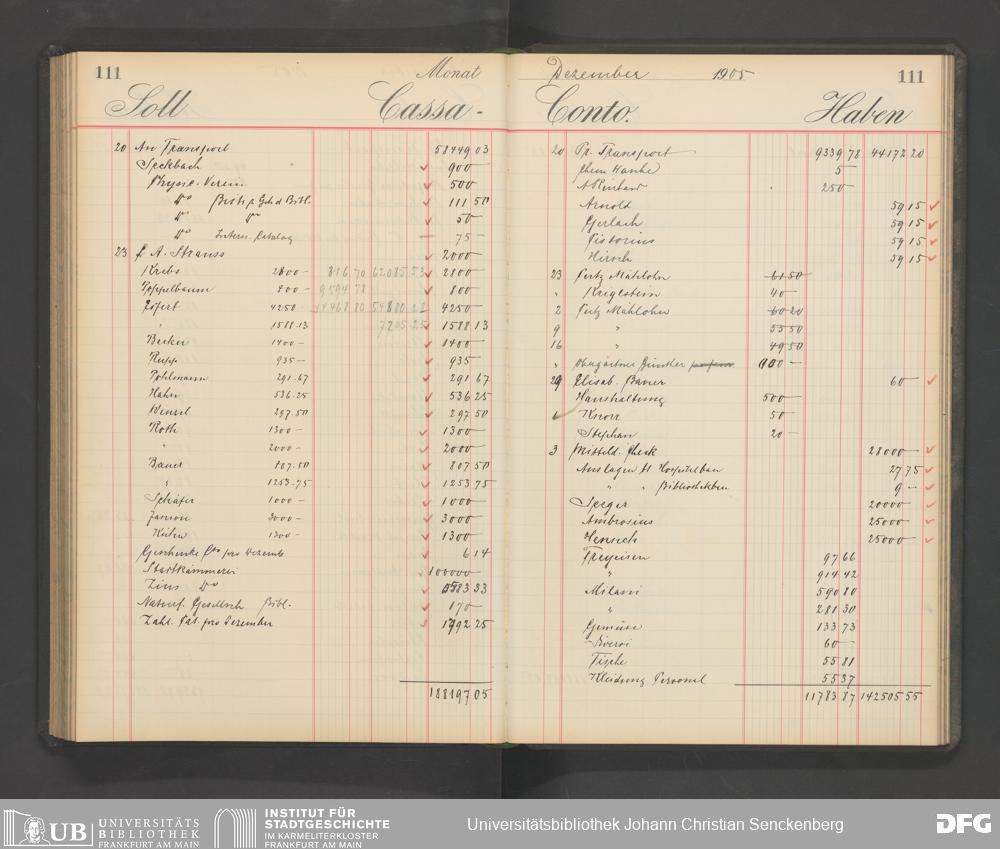 111 Monat
Soll Cassa-
20 An Transport 58449 03
Speckbach 900 -
Physic. Verein 500 -
do Beitr. z. Geh. d. Bibl. 111 50
do do 50 -
do Intern. Catalog 75 -
23 L. A. Strauss 2000 -
Krebs 2800 - 816 70 62085 53 2800
Peppelbaum 800 - 9594 78 800
Zöferl 4250 - 44468 80 54880 28 4250
" 1588.13 7205 25 1588 13
Becker 1400 - 1400
Rupp 935 - 935
Pohlmann 291.67 291 67
Hahn 536.25 536 25
Wenzel 297.50 297 50
Roth 1300 - 1300
" 2000 - 2000
Bauer 807.50 807 50
" 1253.75 1253 75
Schäfer 1000 - 1000
3000 - 3000
Kühn 1300 - 1300
Geschenke Cto pro Dezemb 6 14
Stadtkämmerei 100000
Zins do 583 33
Naturf. Gesellsch Bibl. 170 -
Zahl. Pat. pro Dezember 1792 25
188197 05
Dezember 1905 111
Conto. Haben
20 Pr. Transport 9339 78 44172 20
5 -
A Reinhard 250
Arnold 59 15
Gerlach 59 15
Pistorius 59 15
Hirsch 59 15
23 Fertz Mahlohn 61 50
" Kriglstein 40 -
2 Fertz Mahlohn 60 20
9 " 55 50
16 " 49 50
" Obergärtner Günther 100 -
29 Elisab. Bauer 60 -
Haushaltung 500 -
Knorr 50 -
Stephan 20 -
3 Mitteld. Check 28000 -
Auslagen f. Hospitalbau 27 75
" " Bibliothekbau 9 -
Seeger 20000 -
Ambrosius 25000 -
Hensel 25000 -
Speyeisen 97 66
" 914 42
Milani 590 80
" 281 30
Gemüse 133 73
60 -
Fische 55 81
Kleidung Personal 55 37
11783 87 142505 55
UB UNIVERSITÄTS
BIBLIOTHEK
FRANKFURT AM MAIN
INSTITUT FÜR
STADTGESCHICHTE
IM KARMELITERKLOSTER
FRANKFURT AM MAIN
Universitätsbibliothek Johann Christian Senckenberg
DFG